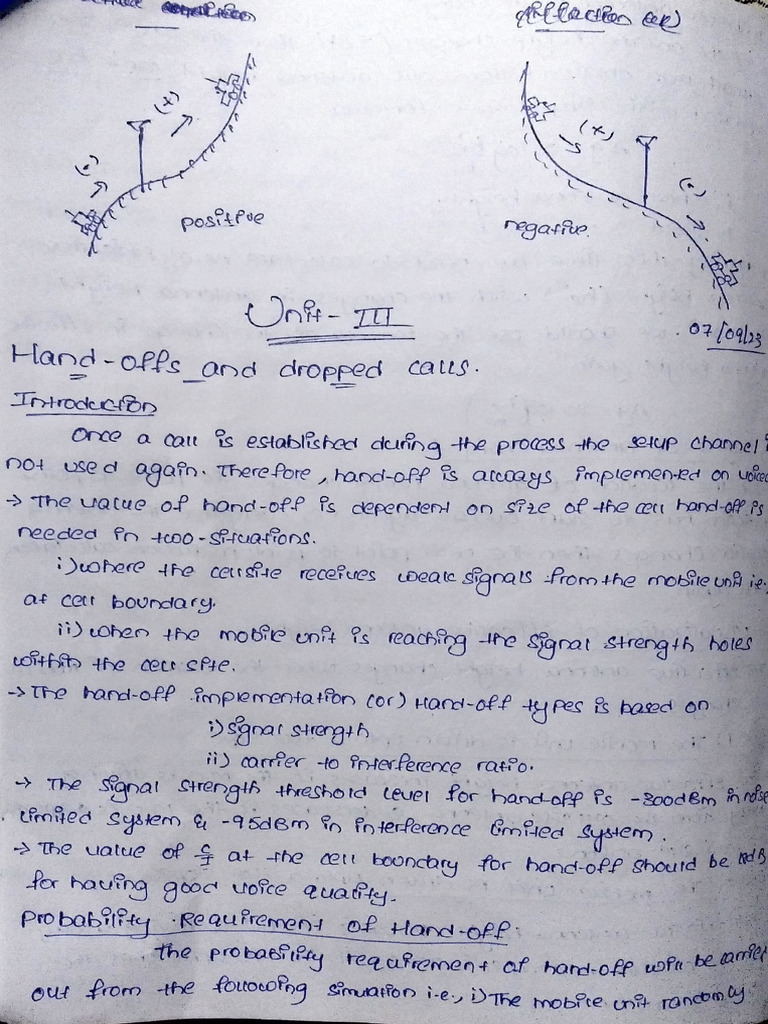 (+)
(-)
positive
(+)
(-)
negative.
Unit-III
07/09/23
Hand-offs and dropped calls.
Introduction
Once a call is established during the process the setup channel is
not used again. Therefore, hand-off is always implemented on voice
→ The value of hand-off is dependent on size of the cell hand-off is
needed in two-situations.
i) where the cellsite receives weak signals from the mobile unit i.e.,
at cell boundary.
ii) when the mobile unit is reaching the signal strength holes
within the cell site.
→ The hand-off implementation (or) Hand-off types is based on
i) signal strength
ii) carrier to interference ratio.
→ The signal strength threshold level for hand-off is -300dBm in noise
limited system & -95dBm in interference limited system.
→ The value of C/I at the cell boundary for hand-off should be
for having good voice quality.
Probability Requirement of Hand-off
The probability requirement of hand-off will be carried
out from the following simulation i.e., i) The mobile unit randomly